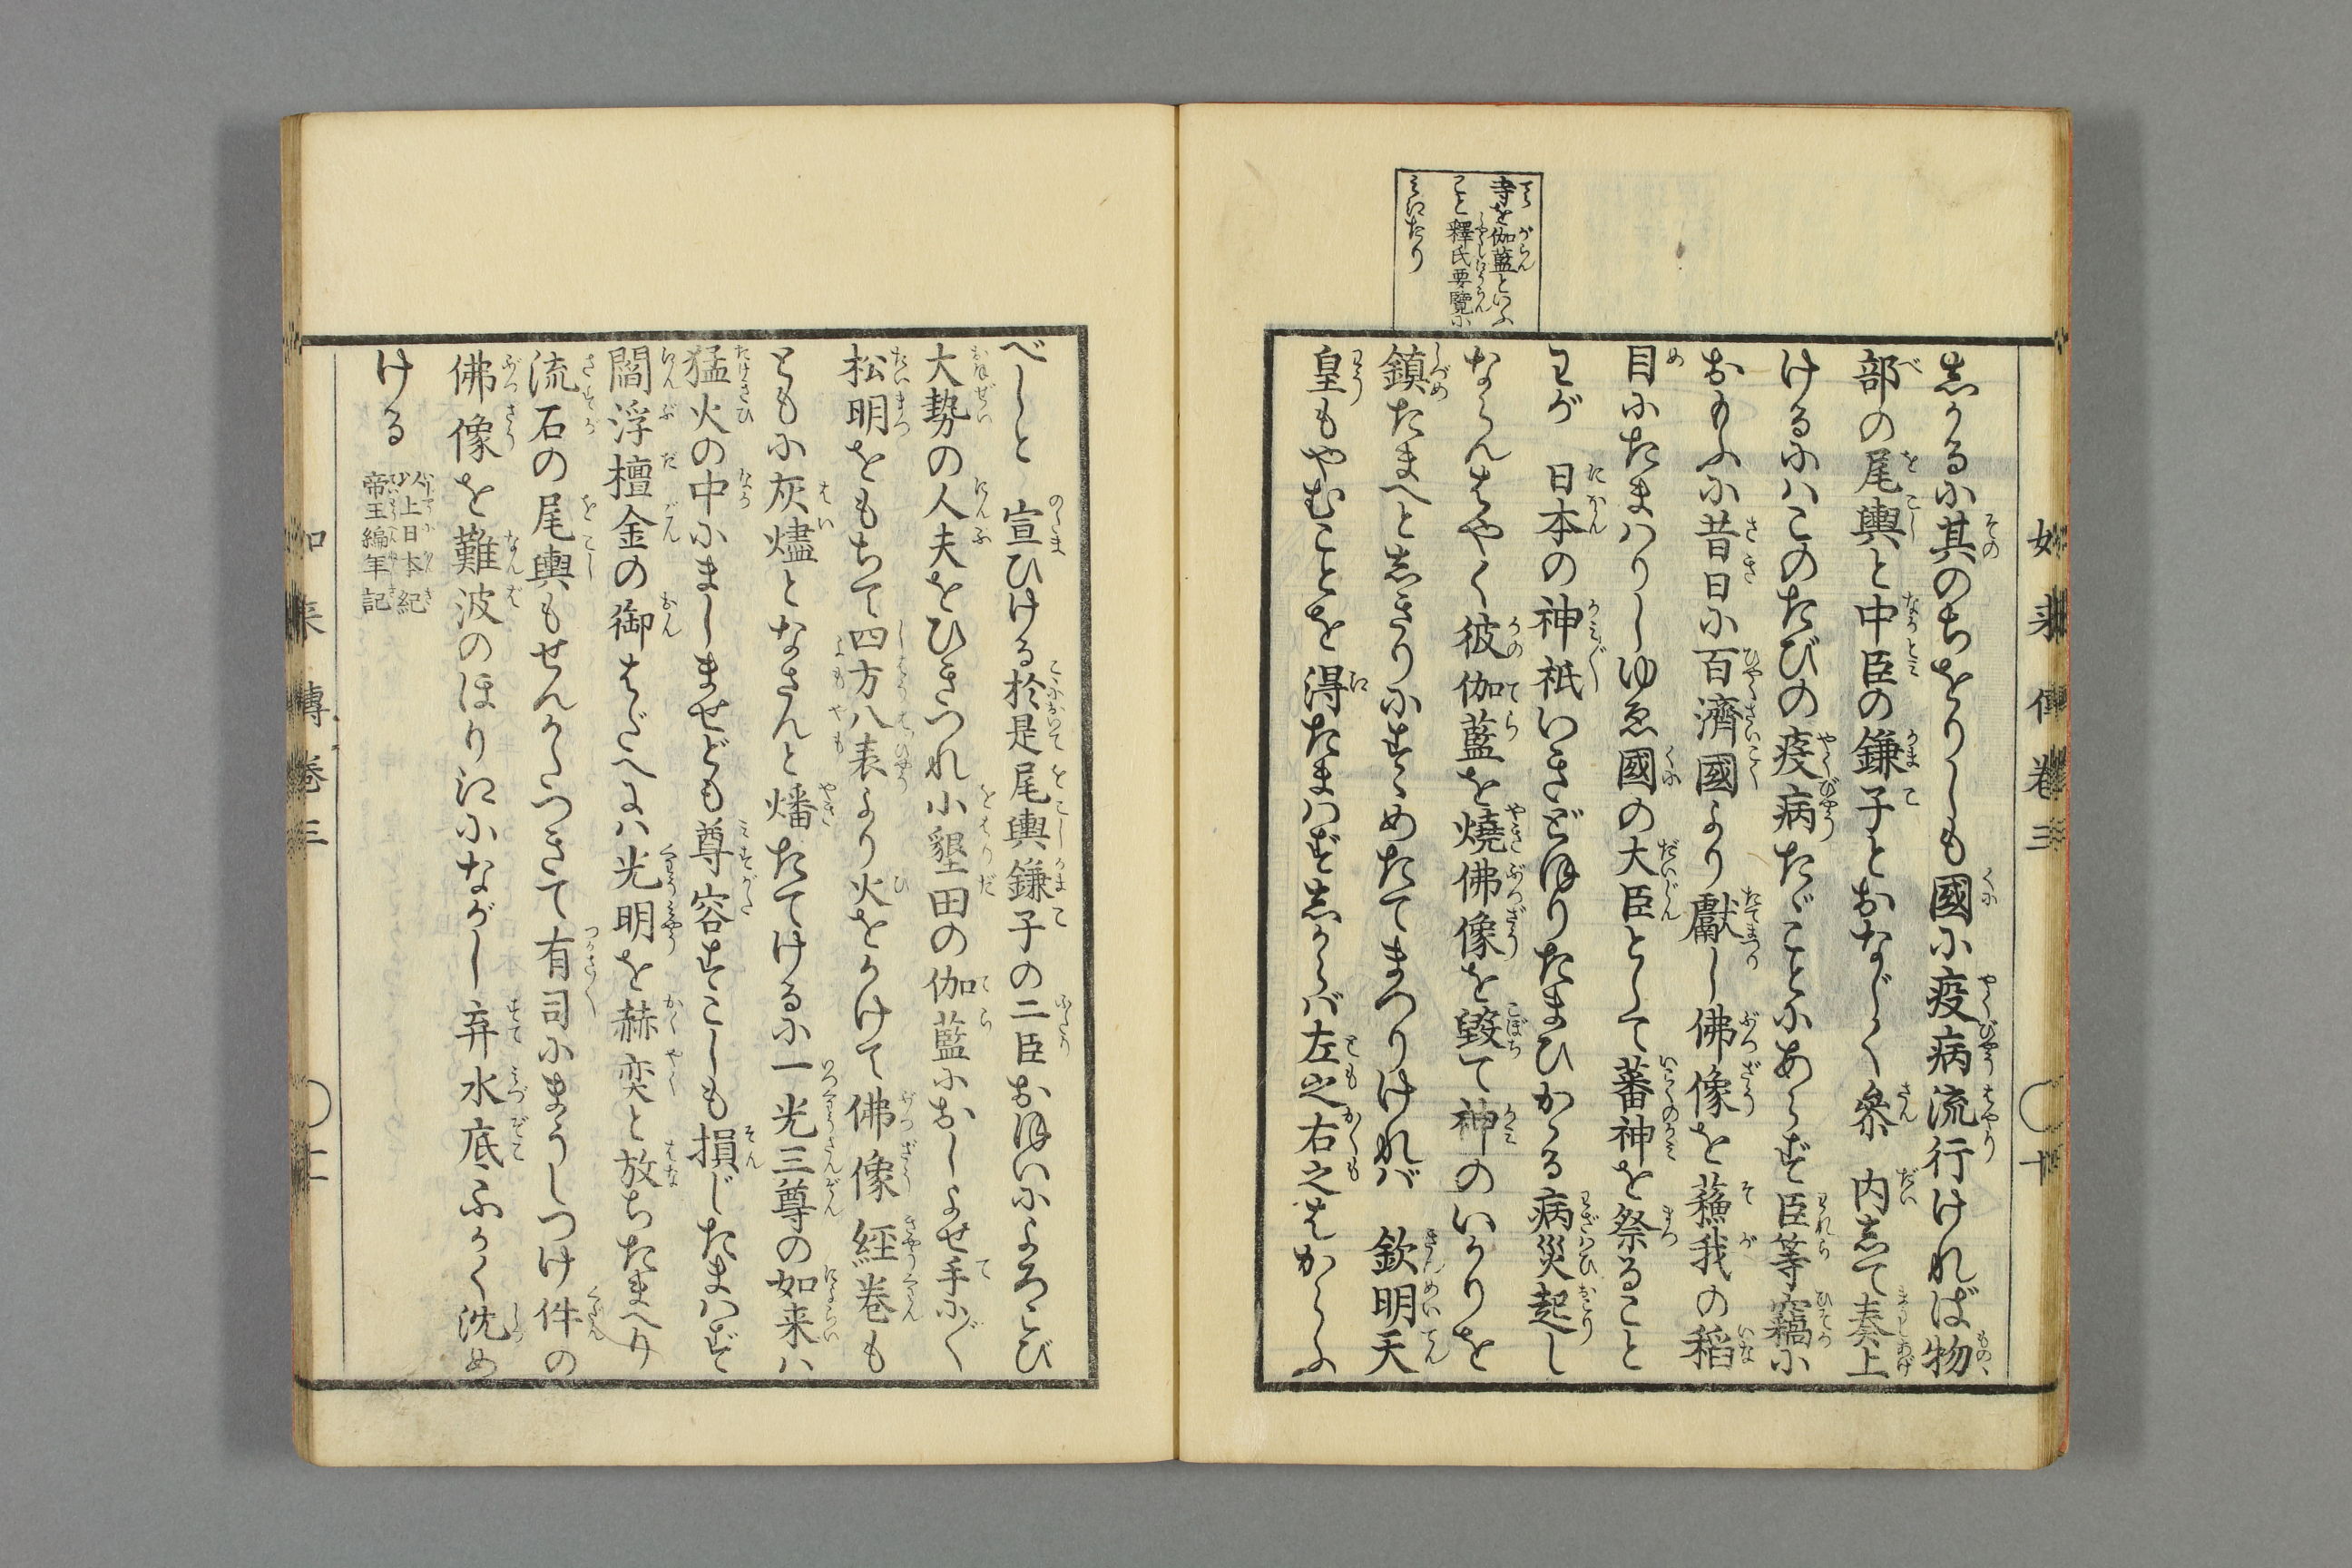 寺を伽藍といふ
こと釋氏要覽に
みえたり
しかるに其のちをりしも國に疫病流行ければ物
部の尾輿と中臣の鎌子とおなじく叅内して奏上
けるにハこのたびの疫病たゞことにあらず臣等竊に
おもふに昔日に百濟國より獻し佛像を蘓我の稻
目にたまハりしゆゑ國の大臣として蕃神を祭ること
わが 日本の神祇いきどほりたまひかゝる病災起し
ならんはやく彼伽藍を燒佛像を毀て神のいかりを
鎮たまへとしきりにすゝめたてまつりけれバ 欽明天
皇もやむことを得たまハずしからバ左之右之はからふ
べしと 宣ひける於是尾輿鎌子の二臣おほいによろこび
大勢の人夫をひきつれ小墾田の伽藍におしよせ手に〲
松明をもちて四方八表より火をかけて佛像経巻も
ともに灰燼となさんと燔たてけるに一光三尊の如来ハ
猛火の中にましませども尊容すこしも損じたまハず
閻浮檀金の御はだへハ光明を赫奕と放ちたまへり
流石の尾輿もせんかたつきて有司にまうしつけ件の
佛像を難波のほり江にながし弃水底ふかく沈め
ける 以上日本紀
帝王編年記
如来傳卷三 〇十
如来傳卷三